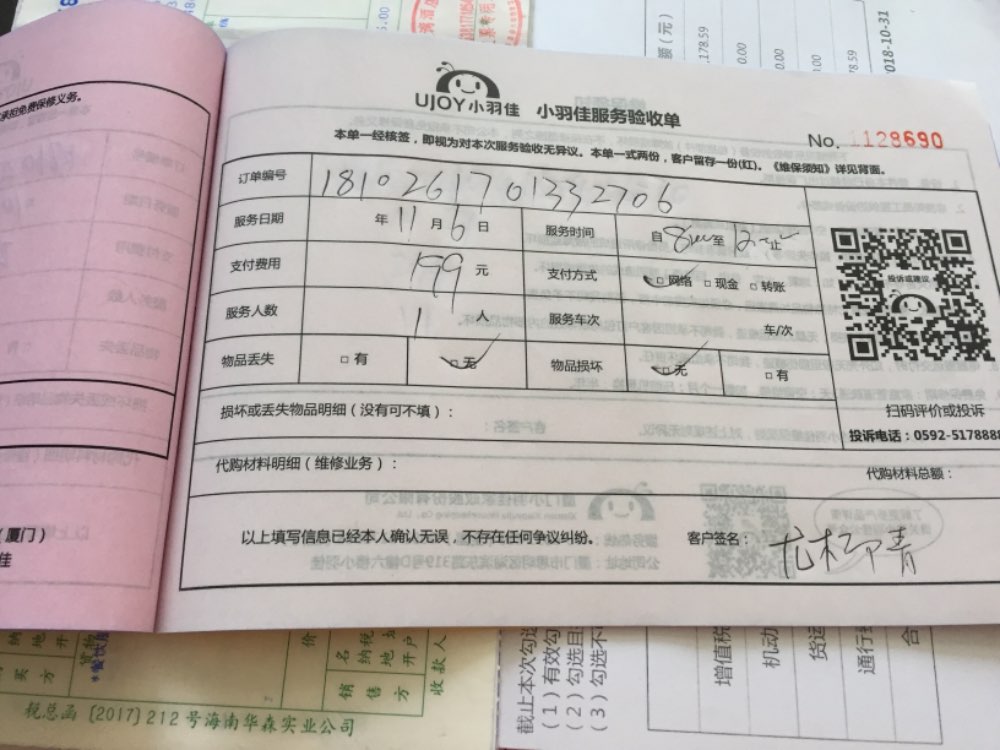 承担免费保修义务。
UJOY小羽佳 小羽佳服务验收单
No. 1128690
本单一经核签，即视为对本次服务验收无异议。本单一式两份，客户留存一份(红)。《维保须知》详见背面。
订单编号 1810261701332706
服务日期 年 11 月 6 日 服务时间 自 至 止
支付费用 199 元 支付方式 □网络 □现金 □转账
服务人数 1 人 服务车次 车/次
物品丢失 □有 □无 物品损坏 □无 □有
投诉或建议
扫码评价或投诉
投诉电话：0592-5178888
损坏或丢失物品明细（没有可不填）：
代购材料明细（维修业务）： 代购材料总额：
以上填写信息已经本人确认无误，不存在任何争议纠纷。 客户签名：
（厦门）
佳
额（元）
178.59
0.00
0.00
78.59
2018-10-31
5.00
买方
价
名
纳税
地
开户
销售方
收款人
税总函〔2017〕212号海南华森实业公司
截止本次勾选
（1）有效勾
（2）勾选目
（3）勾选不
增值税
机动
货运
通行
合